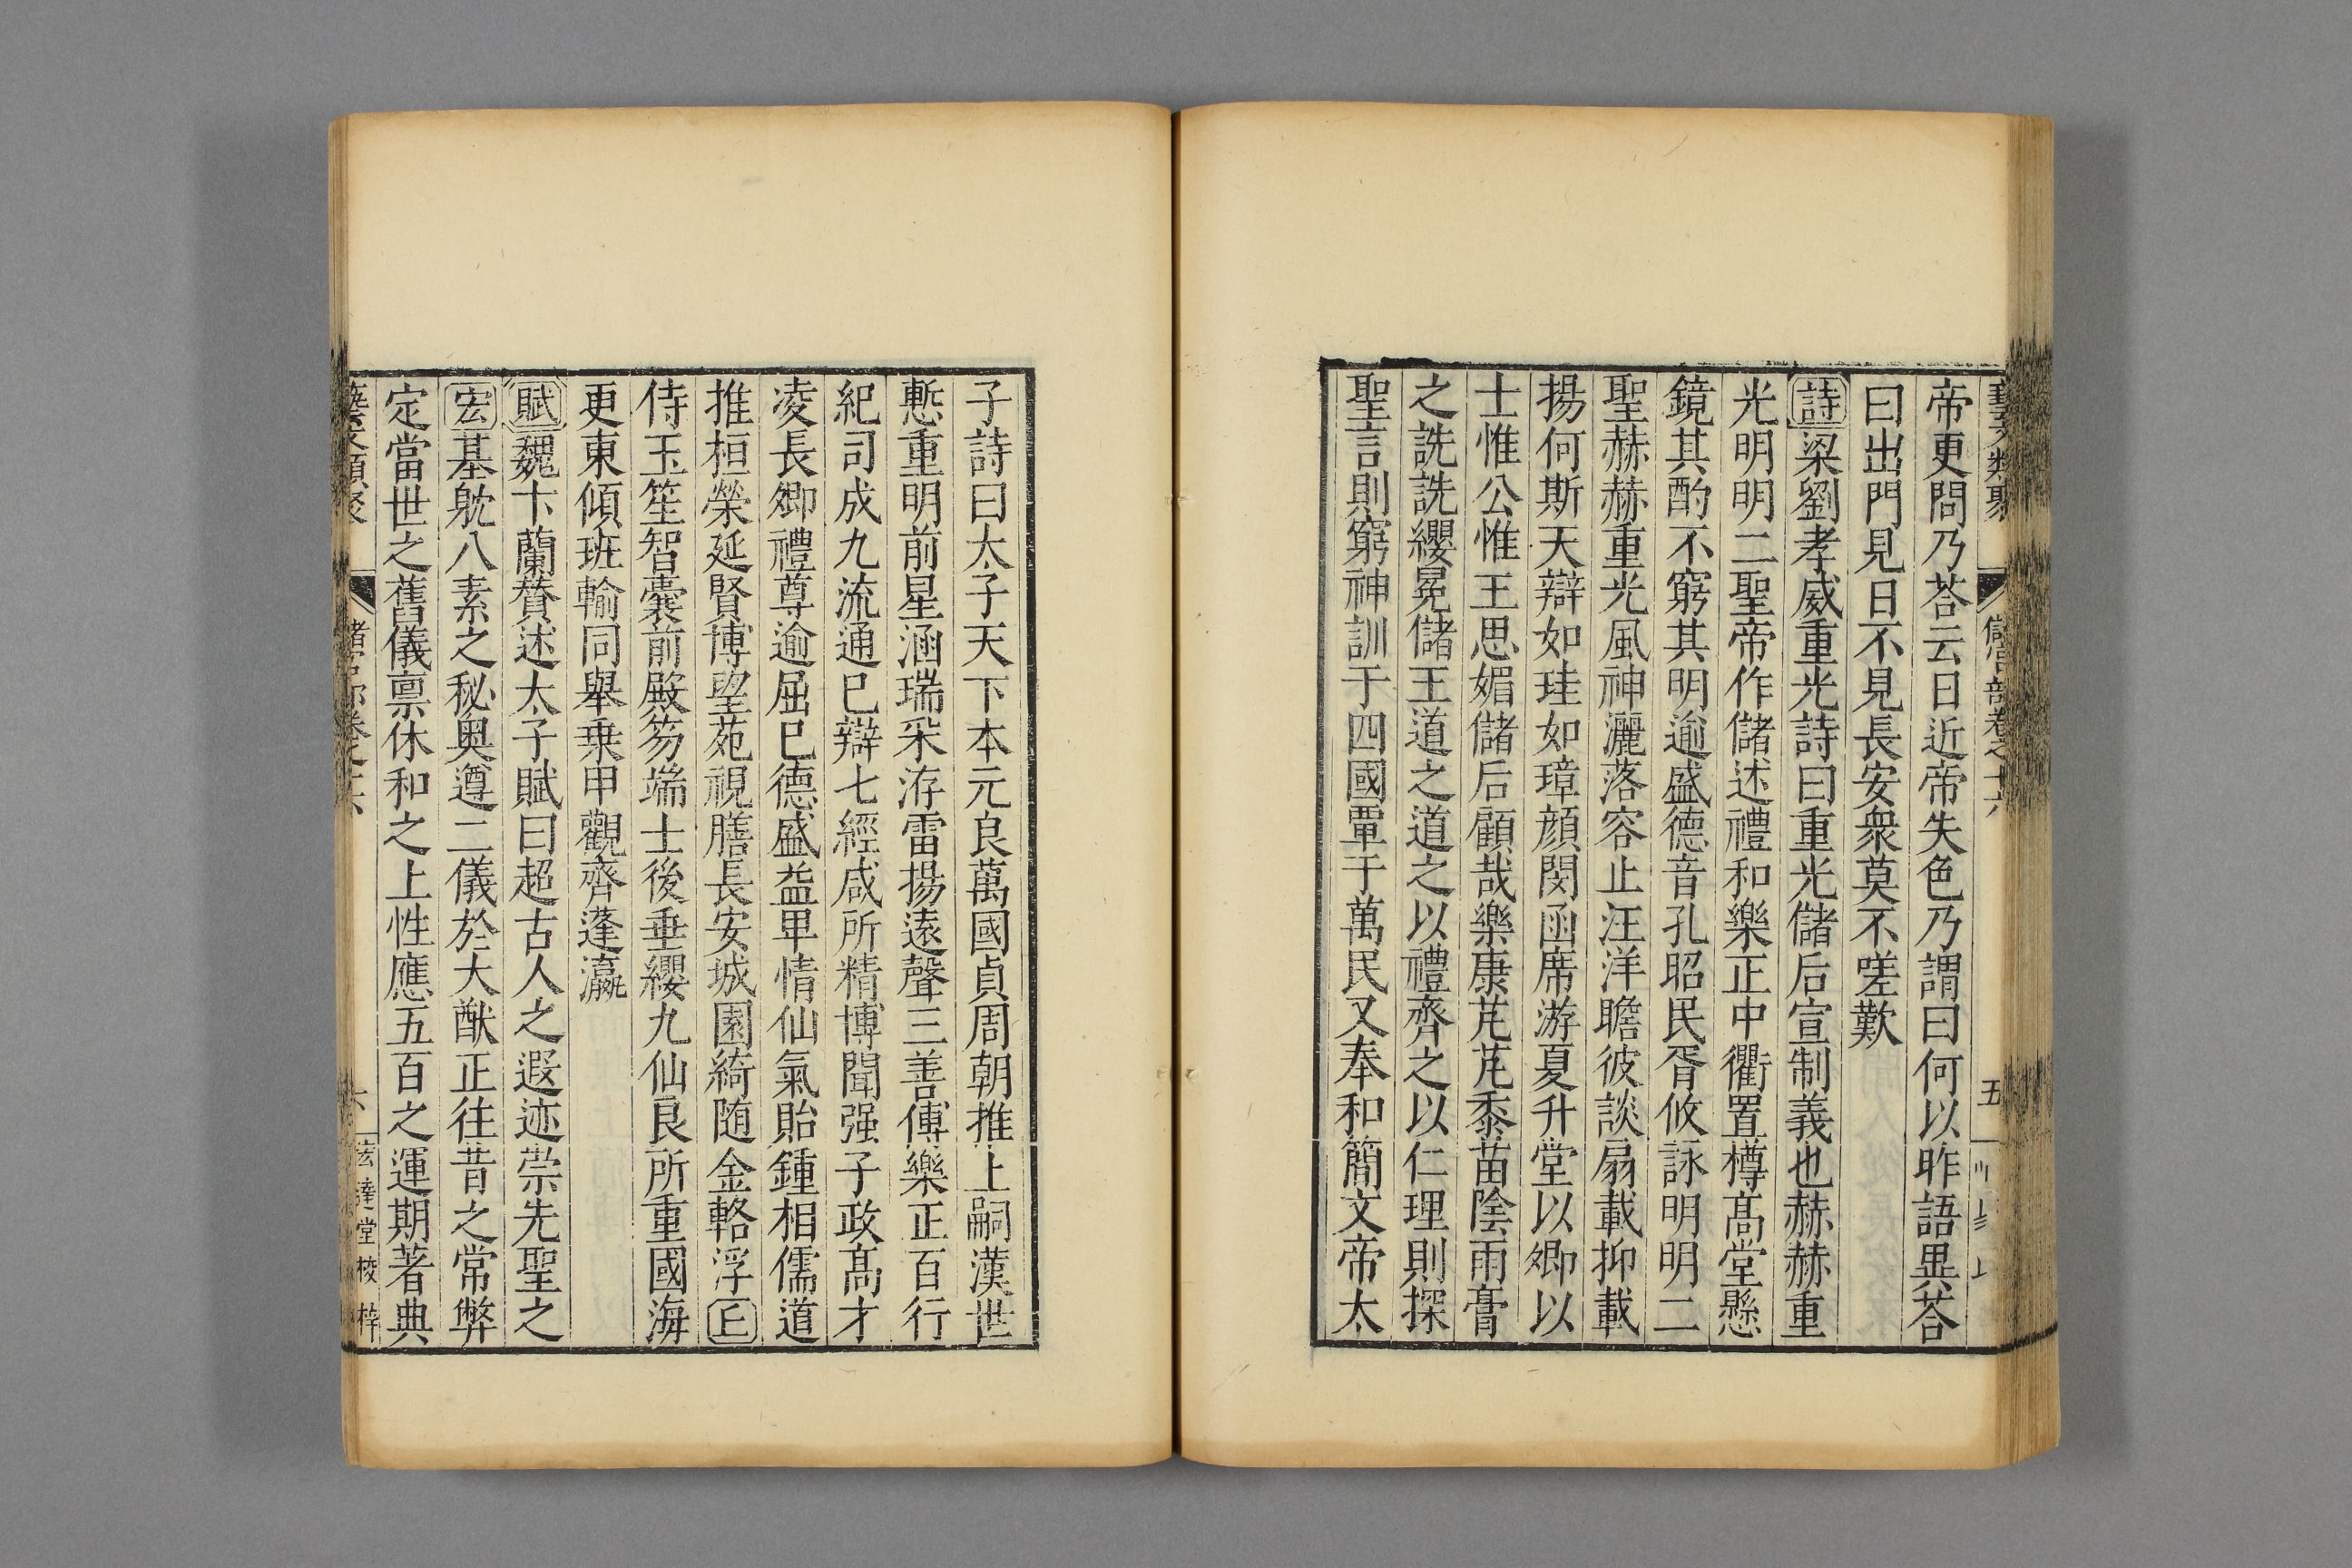 藝文類聚 儲宮部卷之十六 五
帝更問乃荅云日近帝失色乃謂曰何以昨語異荅
曰出門見日不見長安衆莫不嗟歎
詩梁劉孝威重光詩曰重光儲后宣制義也赫赫重
光明明二聖帝作儲述禮和樂正中衢置樽高堂懸
鏡其酌不窮其明逾盛德音孔昭民胥攸詠明明二
聖赫赫重光風神灑落容止汪洋瞻彼談扇載抑載
揚何斯天辯如珪如璋顔閔函席游夏升堂以卿以
士惟公惟王思媚儲后顧哉樂康芃芃黍苗陰雨膏
之詵詵纓冕儲王道之道之以禮齊之以仁理則探
聖言則窮神訓于四國覃于萬民又奉和簡文帝太
子詩曰太子天下本元良萬國貞周朝推上嗣漢世
慙重明前星涵瑞采洊雷揚遠聲三善傳樂正百行
紀司成九流通已辯七經咸所精博聞强子政高才
凌長卿禮尊逾屈已德盛益卑情仙氣貽鍾相儒道
推桓榮延賢博望苑視膳長安城園綺随金輅浮丘
侍玉笙智囊前殿笏端士後垂纓九仙良所重國海
更東傾班輸同舉乗甲觀齊蓬瀛
賦魏卞蘭贊述太子賦曰超古人之遐迹崇先聖之
宏基躭八素之秘奥遵二儀於大猷正往昔之常弊
定當世之舊儀禀休和之上性應五百之運期著典
藝文類聚 儲宮部卷之十六 六 達堂梓